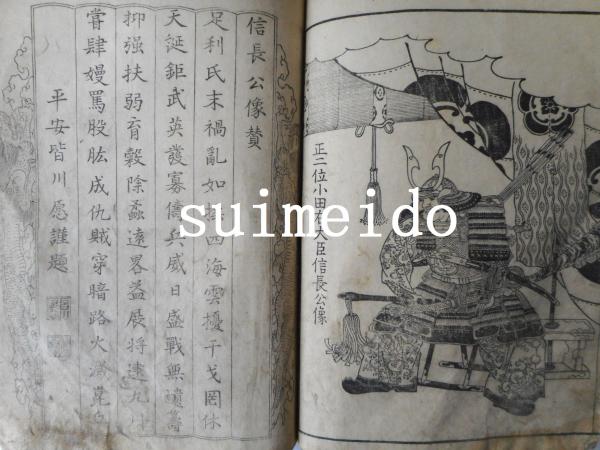 正二位小田右大臣信長公像
信長公像贊
足利氏末禍亂如 四海雲擾干戈罔休
天誕鉅武英發寡儔兵威日盛戰無
抑强扶弱育穀除蟊遠畧益展將逮九
嘗肆嫚罵股肱成仇賊穿暗路火
平安皆川愿謹題
suimeido